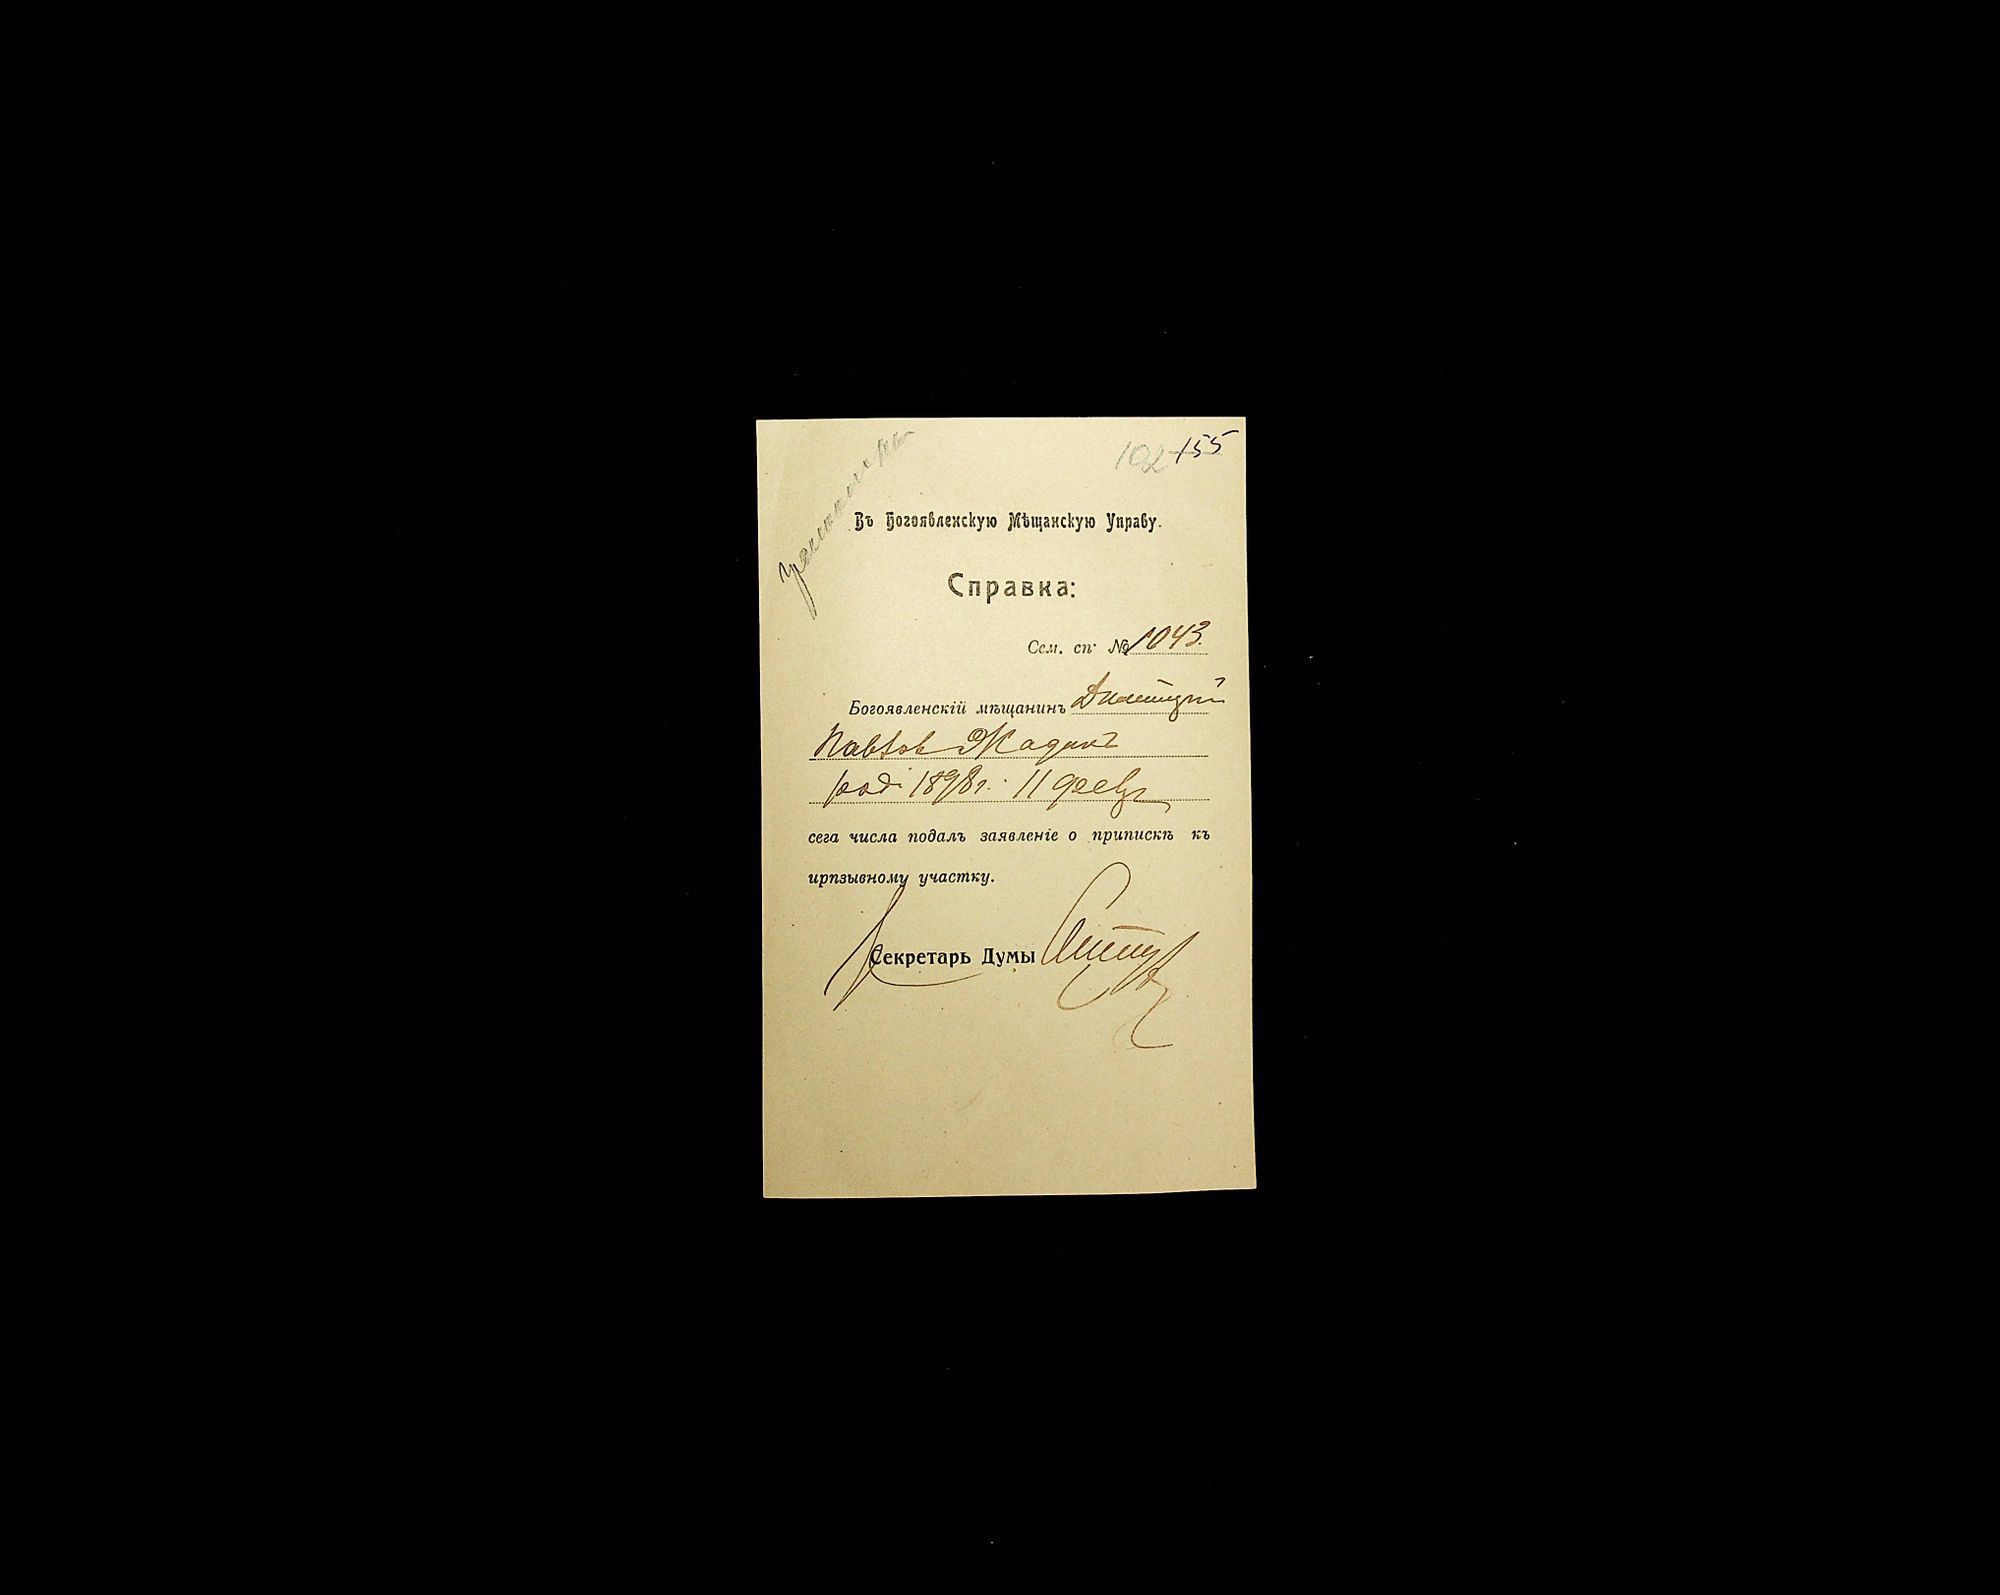 102 155
Въ Богоявленскую Мѣщанскую Управу.
Справка:
Сем. сп· № 1043.
Богоявленскій мѣщанинъ Дмитрій
Павлов Жадик
род. 1898 г. 11 февр
сега числа подалъ заявленіе о припискѣ къ
ирпзывному участку.
Секретарь Думы